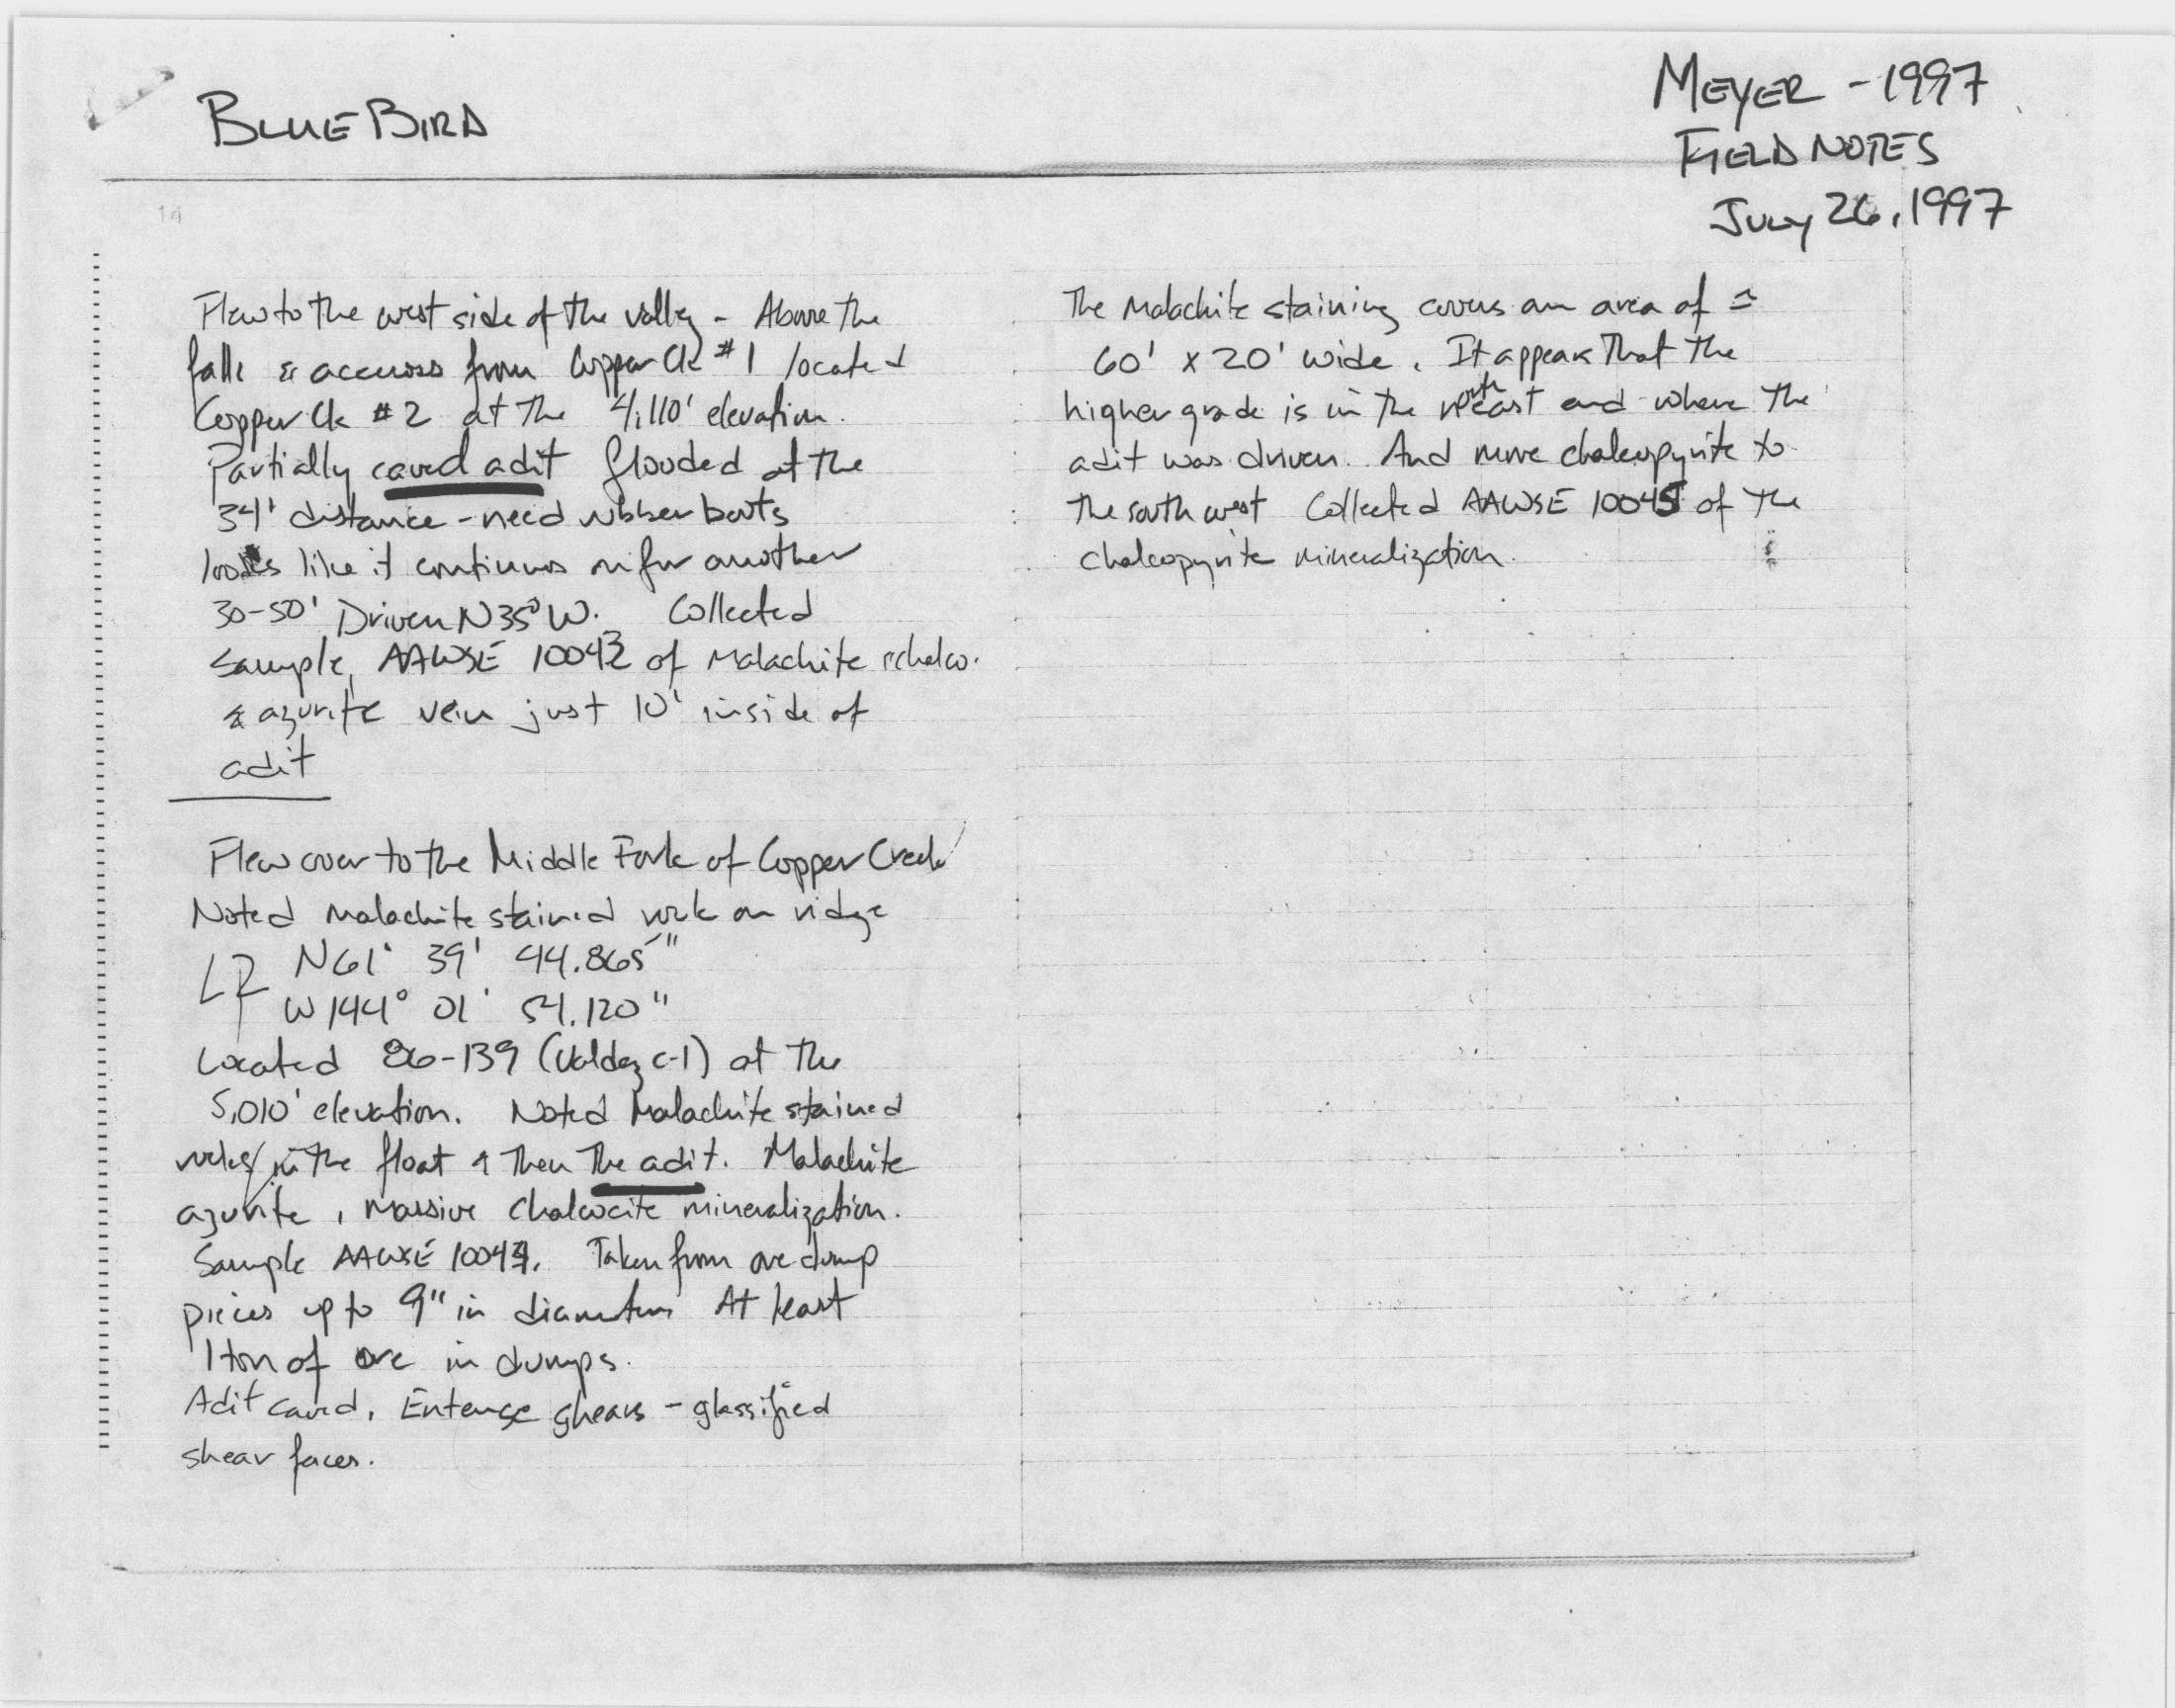 BLUE BIRD
MEYER - 1997
FIELD NOTES
JULY 26, 1997
14
Flew to the west side of the valley - Above the
falls & accross from Copper Ck #1 located
Copper Ck #2 at the 4,110' elevation.
Partially caved adit flooded at the
34' distance - need rubber boots
looks like it continues on for another
30-50' Driven N35°W. Collected
Sample, AAWSE 10043 of Malachite
& azurite vein just 10' inside of
adit
Flew over to the Middle Fork of Copper Creek
Noted malachite stained rock on ridge
N61° 39' 44.865"
W144° 01' 54.120"
Located 86-139 (Valdez C-1) at the
5,010' elevation. Noted Malachite stained
rocks in the float & then the adit. Malachite
azurite, massive chalcocite mineralization.
Sample AAWSE 10044. Taken from ore dump
pieces up to 9" in diameter At least
1 ton of ore in dumps.
Adit caved. Entense shears - glassified
shear faces.
The Malachite staining covers an area of ≃
60' x 20' wide. It appears that the
higher grade is in the northeast end where the
adit was driven. And more chalcopyrite to
the southwest Collected AAWSE 10045 of the
chalcopyrite mineralization.